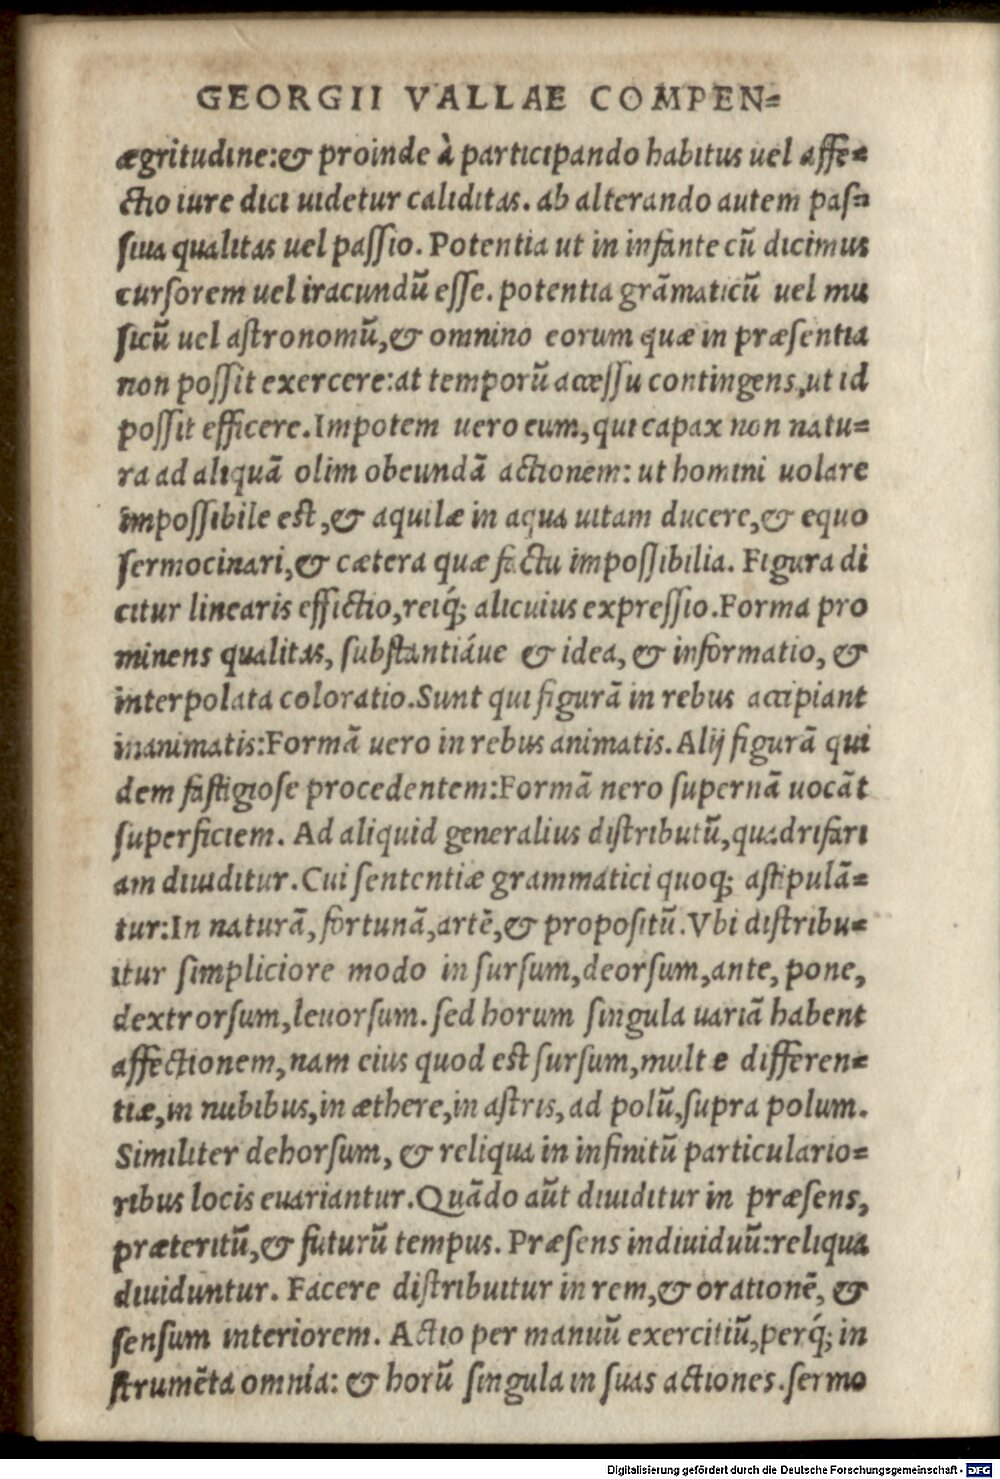 GEORGII VALLAE COMPEN=
ægritudine:& proinde à participando habitus uel affe=
ctio iure dici uidetur caliditas. ab alterando autem pas=
siua qualitas uel passio. Potentia ut in infante cū dicimus
cursorem uel iracundū esse. potentia grāmaticū uel mu
sicū uel astronomū,& omnino eorum quæ in præsentia
non possit exercere:at temporū accessu contingens,ut id
possit efficere.Impotem uero eum,qui capax non natu=
ra ad aliquā olim obeundā actionem: ut homini uolare
impossibile est,& aquilæ in aqua uitam ducere,& equo
sermocinari,& cætera quæ factu impossibilia. Figura di
citur linearis effictio,reiq́; alicuius expressio.Forma pro
minens qualitas, substantiáue & idea, & informatio, &
interpolata coloratio.Sunt qui figurā in rebus accipiant
inanimatis:Formā uero in rebus animatis. Alij figurā qui
dem fastigiose procedentem:Formā nero supernā uocāt
superficiem. Ad aliquid generalius distributū,quadrifari
am diuiditur.Cui sententiæ grammatici quoq; astipulā=
tur:In naturā, fortunā,artē,& propositū.Vbi distribu=
itur simpliciore modo in sursum,deorsum,ante, pone,
dextrorsum,leuorsum. sed horum singula uariā habent
affectionem,nam eius quod est sursum,multe differen=
tiæ,in nubibus,in æthere,in astris, ad polū,supra polum.
Similiter dehorsum, & reliqua in infinitū particulario=
ribus locis euariantur.Quādo aūt diuiditur in præsens,
præteritū,& futurū tempus. Præsens indiuiduū:reliqua
diuiduntur. Facere distribuitur in rem,& orationē, &
sensum interiorem. Actio per manuū exercitiū,perq́; in
strumēta omnia: & horū singula in suas actiones.sermo
Digitalisierung gefördert durch die Deutsche Forschungsgemeinschaft - DFG